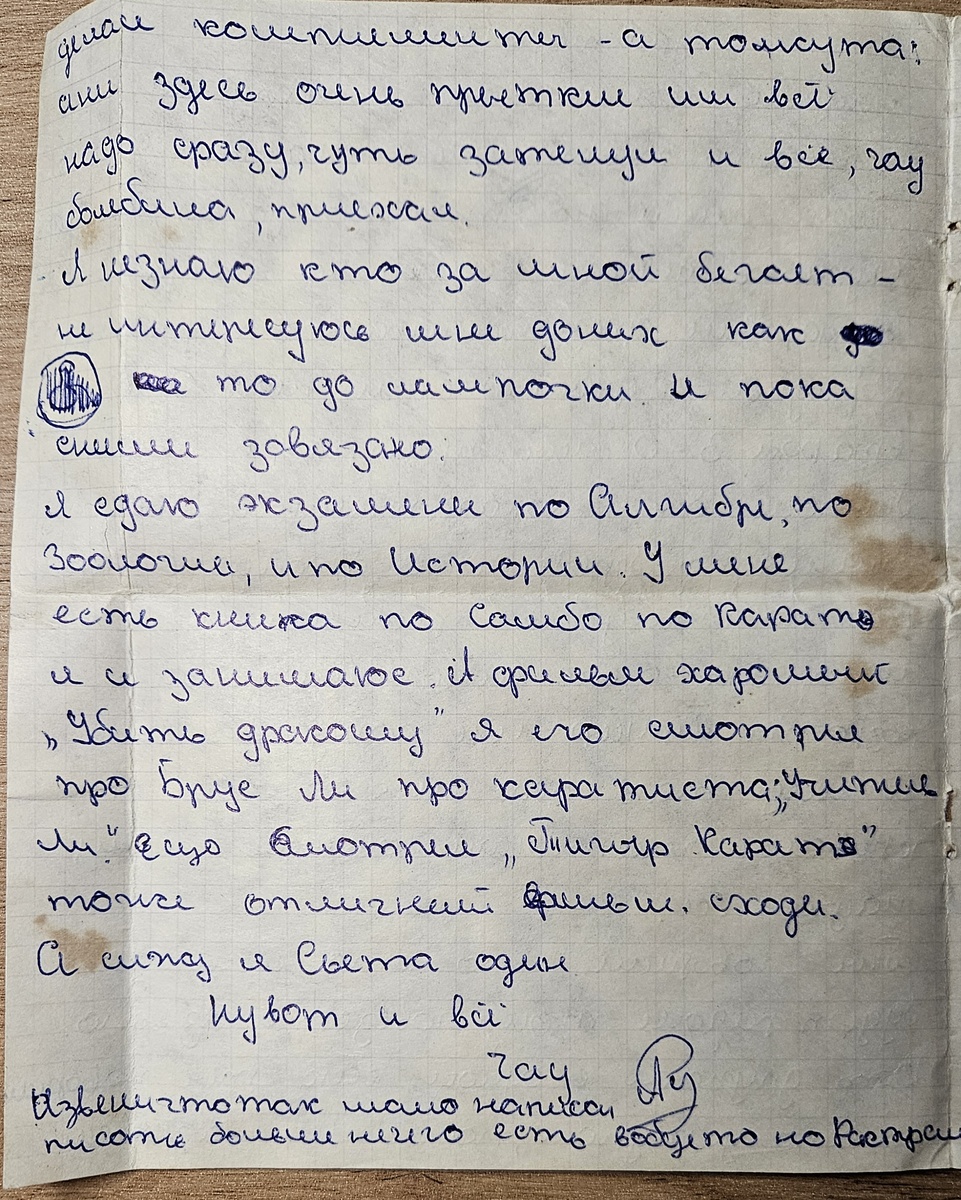 делаи компимииты - а толкута:
ани здесь очень прыткии им всё
надо сразу, чуть затенуи и все, чау
бомбина, приехал.
Я незнаю кто за мной бегает -
не интересуюсь мне доних как
то до лампочки и пока
сними завязано.
я сдаю экзамени по Алгибри, по
Зоологии, и по Истории. У мене
есть книжа по Самбо по Карате
и я занимаюс. А фильм харошый
„Убить дракошу" я его смотрил
про Брус Ли про каратиста; „Учитиль
Ли." ещо смотрил „Тигыр Карате"
тоже отличний фильм. сходи.
А сижу я Света один
Ну вот и всё
Чау
Извени что так мало написал
писать больши нечего есть вобще то но Расткрам